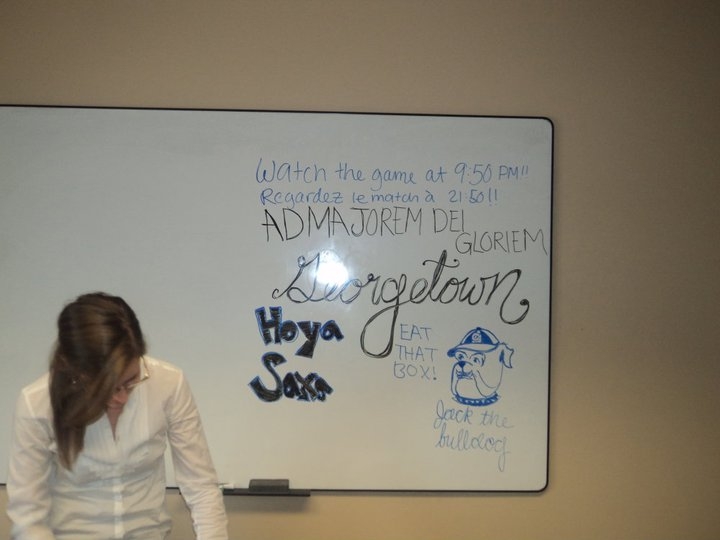 Watch the game at 9:50 PM!!
Regardez le match à 21:50!!
AD MAJOREM DEI
GLORIEM
Georgetown
Hoya
Saxa
EAT
THAT
BOX!
G
Jack the
bulldog